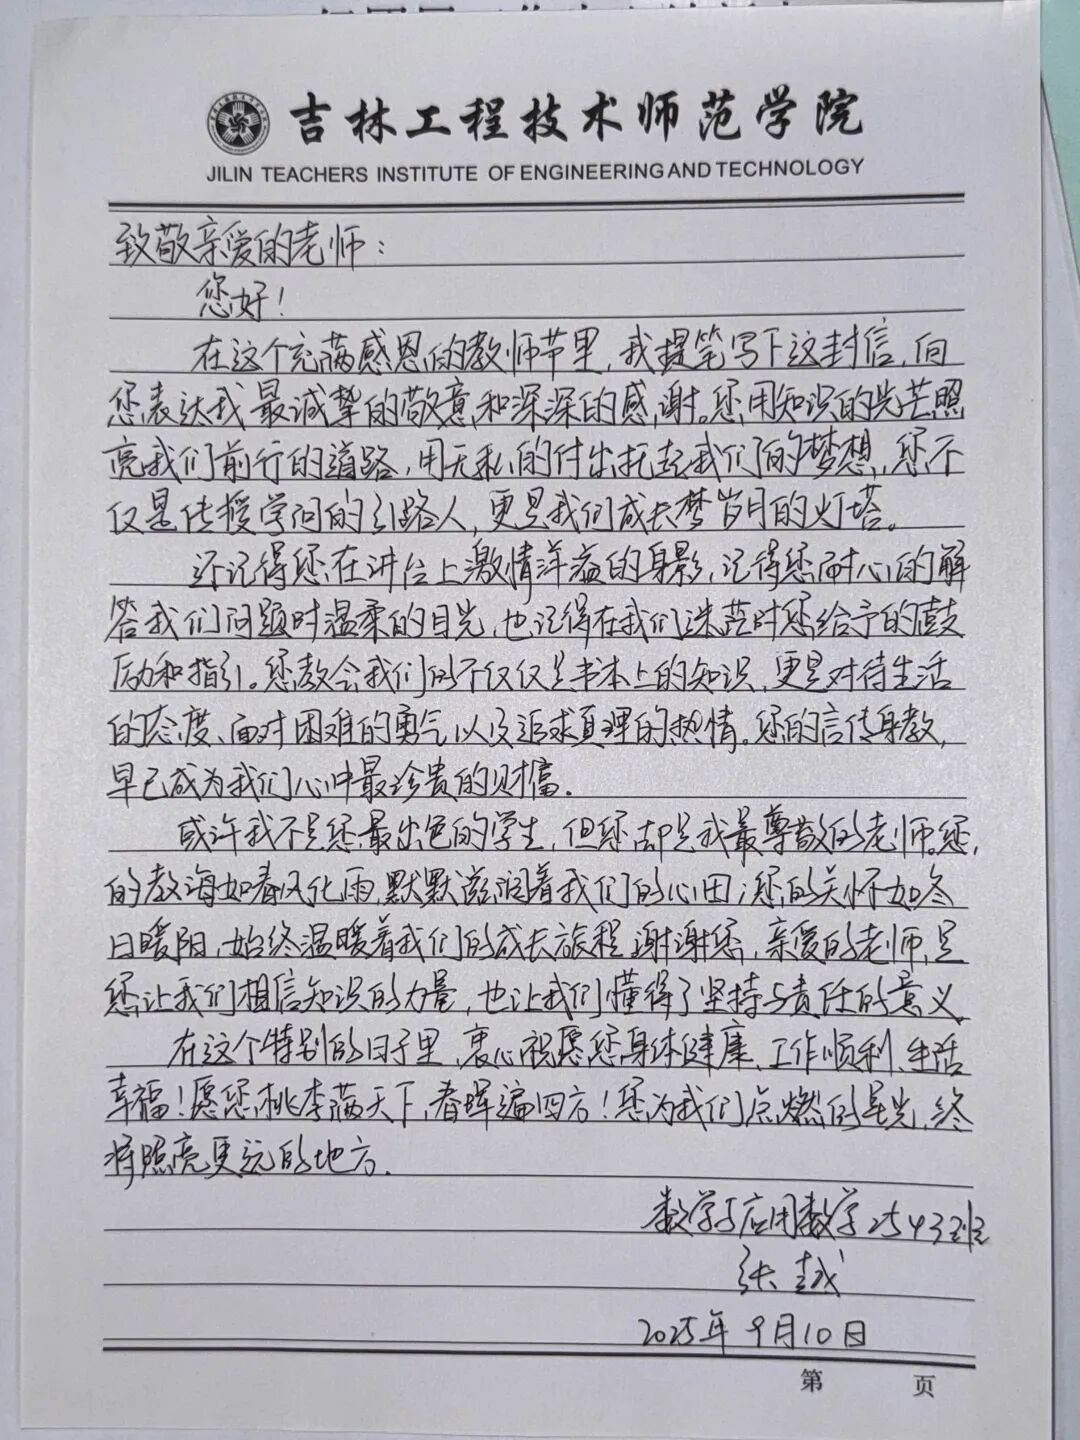 吉林工程技术师范学院
JILIN TEACHERS INSTITUTE OF ENGINEERING AND TECHNOLOGY
致敬亲爱的老师：
您好！
在这个充满感恩的教师节里，我提笔写下这封信，向
您表达我最诚挚的敬意和深深的感谢。您用知识的光芒照
亮我们前行的道路，用无私的付出托起我们的梦想，您不
仅是传授学问的引路人，更是我们成长梦岁月的灯塔。
还记得您在讲台上激情洋溢的身影，记得您耐心的解
答我们问题时温柔的目光，也记得在我们迷茫时您给予的鼓
励和指引。您教会我们的不仅仅是书本上的知识，更是对待生活
的态度、面对困难的勇气以及追求真理的热情。您的言传身教，
早已成为我们心中最珍贵的财富。
或许我不是您最出色的学生，但您却是我最尊敬的老师。您
的教诲如春风化雨，默默滋润着我们的心田；您的关怀如冬
日暖阳，始终温暖着我们的成长旅程。谢谢您，亲爱的老师，是
您让我们相信知识的力量，也让我们懂得了坚持与责任的意义
在这个特别的日子里，衷心祝愿您身体健康、工作顺利、生活
幸福！愿您桃李满天下，春晖遍四方！您为我们点燃的星光，终
将照亮更远的地方.
数学与应用数学2543班
张越
2025年9月10日
第 页